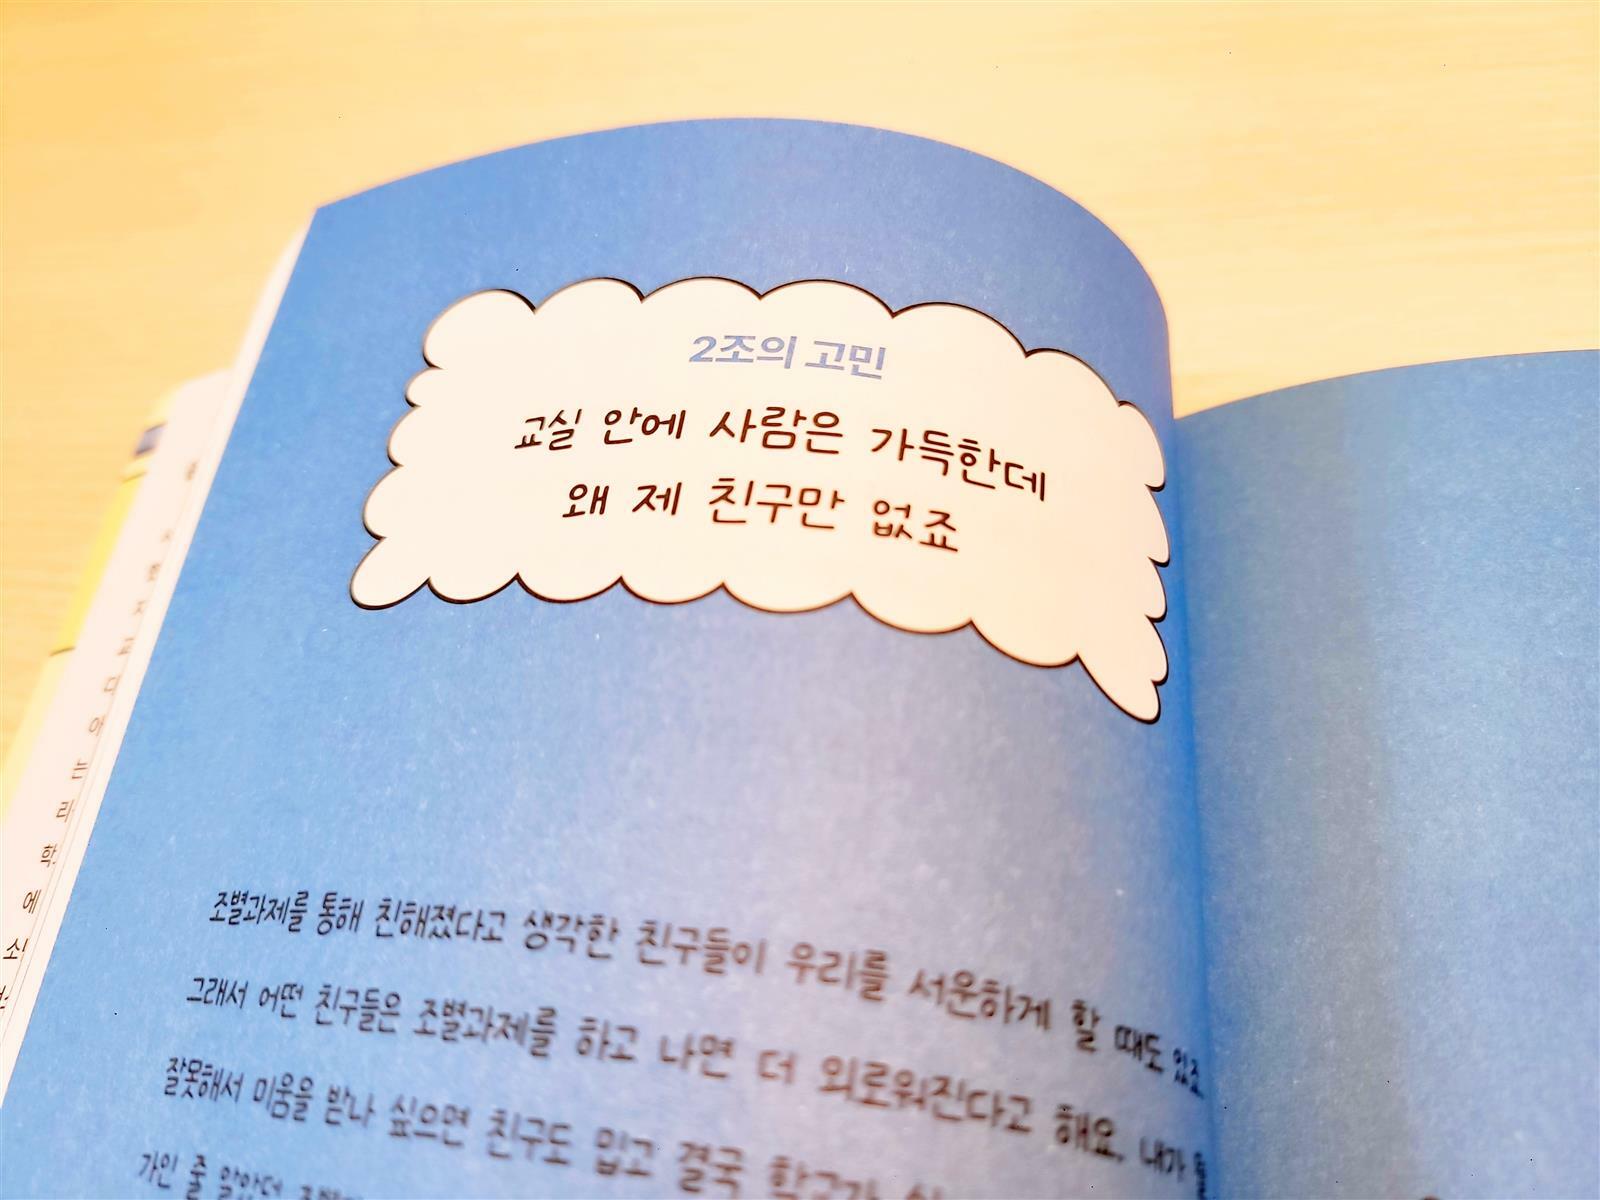 2조의 고민
교실 안에 사람은 가득한데
왜 제 친구만 없죠
조별과제를 통해 친해졌다고 생각한 친구들이 우리를 서운하게 할 때도 있죠
그래서 어떤 친구들은 조별과제를 하고 나면 더 외로워진다고 해요. 내가
잘못해서 미움을 받나 싶으면 친구도 밉고 결국 학교가
가인 줄 알았던